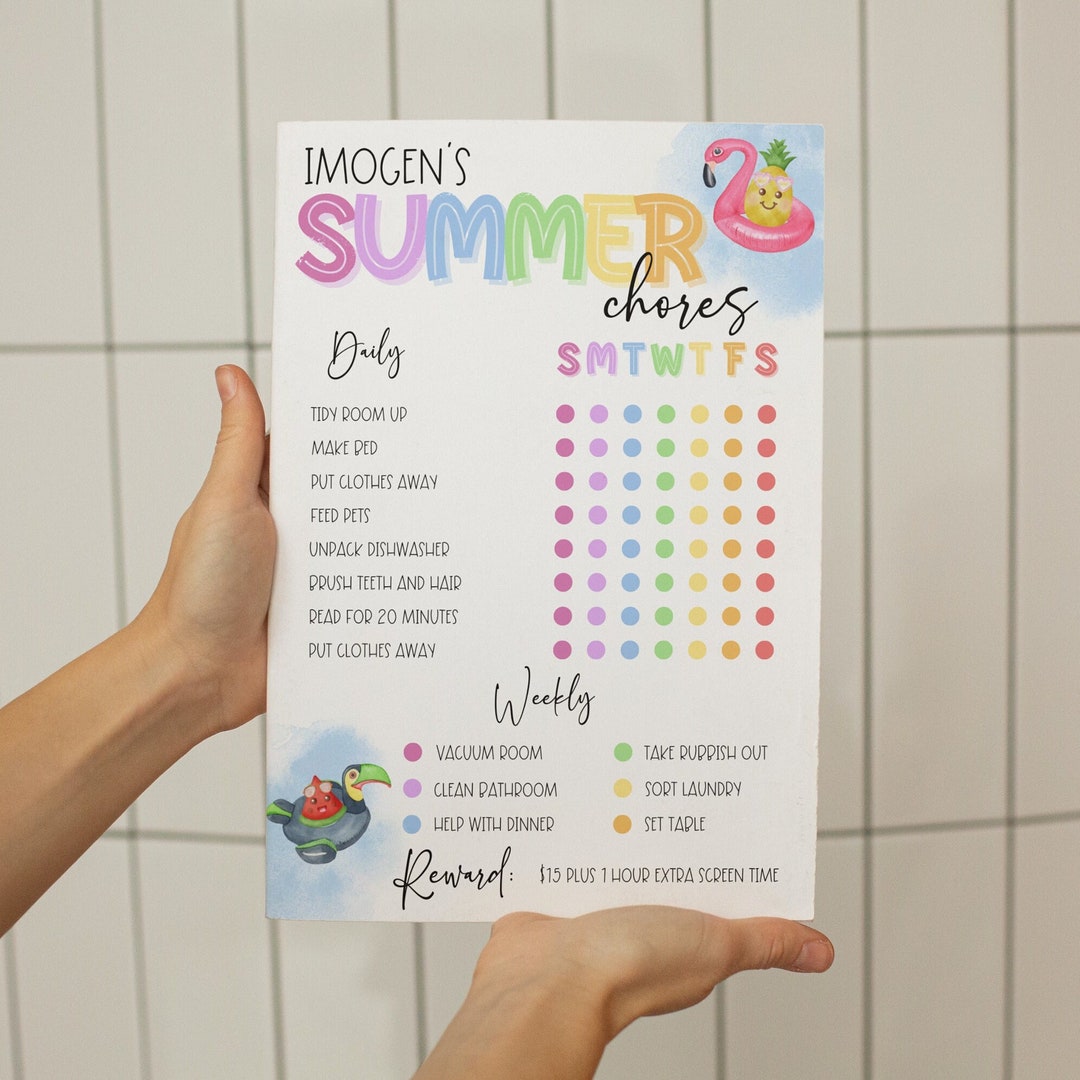 IMOGEN'S
SUMMER
chores
Daily
S M T W T F S
TIDY ROOM UP
MAKE BED
PUT CLOTHES AWAY
FEED PETS
UNPACK DISHWASHER
BRUSH TEETH AND HAIR
READ FOR 20 MINUTES
PUT CLOTHES AWAY
Weekly
VACUUM ROOM
CLEAN BATHROOM
HELP WITH DINNER
TAKE RUBBISH OUT
SORT LAUNDRY
SET TABLE
Reward: $15 PLUS 1 HOUR EXTRA SCREEN TIME